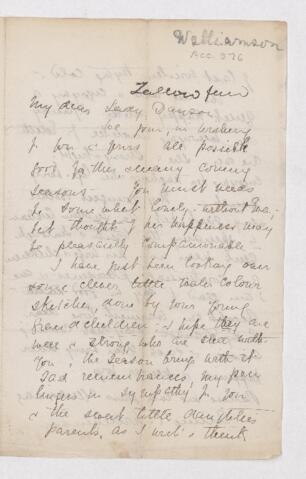 Williamson
Acc. 376
Fellow fen
My dear Lady Dawson
We join in wishing
to you & yours all possible
good for this coming
Seasons. You must needs
be some what lonely without
but thought of her happiness may
be pleasantly companionable
I have just been looking over
some clever little water colour
sketches, done by your young
Grandchildren: I hope they are
well & strong who are still with
You, the Season brings with it
Sad remembrances, my pen
lingers in sympathy for you
& the sweet little daughters
parents, as I write & think